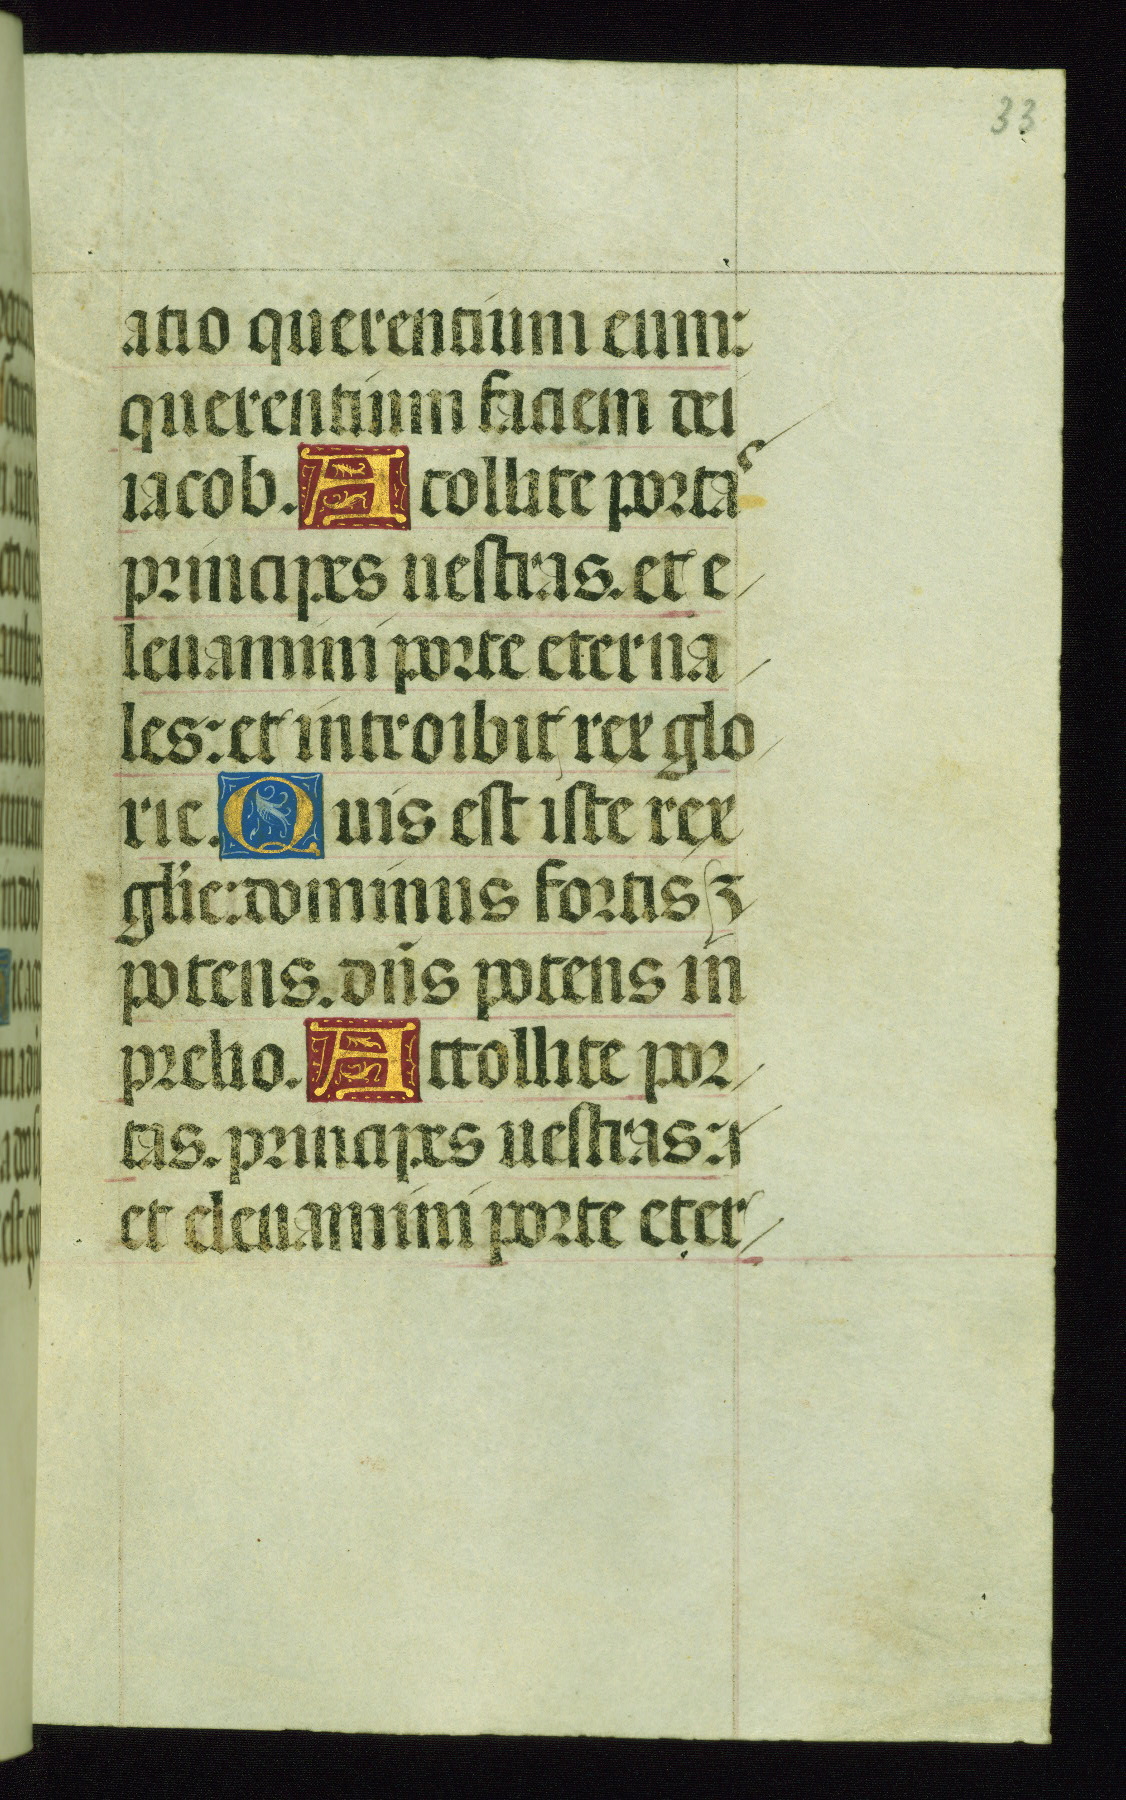 33
atio querentium eum:
querentium faciem dei
iacob. Atollite portas
principes uestras. et e
leuamini porte eterna
les: et introibit rex glo
rie. Quis est iste rex
glīe: dominus fortis ⁊
potens. dn̄s potens in
prelio. Attollite por
tas. principes uestras:
et eleuamini porte eter